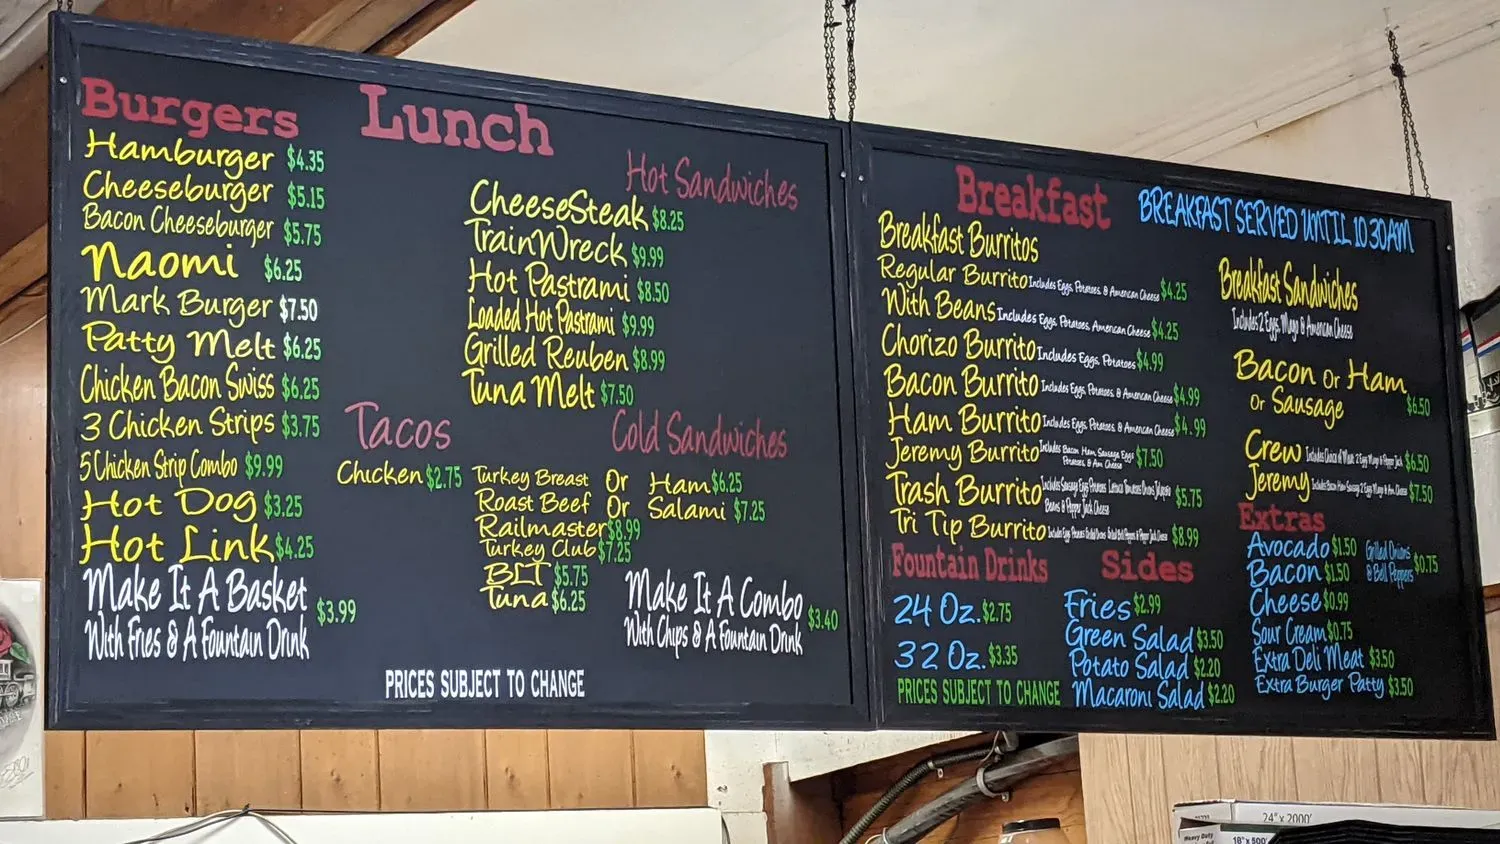 Burgers
Hamburger $4.35
Cheeseburger $5.15
Bacon Cheeseburger $5.75
Naomi $6.25
Mark Burger $7.50
Patty Melt $6.25
Chicken Bacon Swiss $6.25
3 Chicken Strips $3.75
5 Chicken Strip Combo $9.99
Hot Dog $3.25
Hot Link $4.25
Make It A Basket $3.99
With Fries & A Fountain Drink
Lunch
Hot Sandwiches
CheeseSteak $8.25
TrainWreck $9.99
Hot Pastrami $8.50
Loaded Hot Pastrami $9.99
Grilled Reuben $8.99
Tuna Melt $7.50
Tacos
Chicken $2.75
Cold Sandwiches
Turkey Breast Or Ham $6.25
Roast Beef Or Salami $7.25
Railmaster $8.99
Turkey Club $7.25
BLT $5.75
Tuna $6.25
Make It A Combo $3.40
With Chips & A Fountain Drink
PRICES SUBJECT TO CHANGE
Breakfast
BREAKFAST SERVED UNTIL 10:30AM
Breakfast Burritos
Regular Burrito Includes Eggs, Potatoes, & American Cheese $4.25
With Beans Includes Eggs, Potatoes, American Cheese $4.25
Chorizo Burrito Includes Eggs, Potatoes $4.99
Bacon Burrito Includes Eggs, Potatoes, & American Cheese $4.99
Ham Burrito Includes Eggs, Potatoes, & American Cheese $4.99
Jeremy Burrito Includes Bacon Ham Sausage Eggs $7.50
Potatoes, & Am Cheese
Trash Burrito Includes Sausage Eggs Potatoes Lettuce Tomatoes Onions Jalapeno $5.75
Beans & Pepper Jack Cheese
Tri Tip Burrito Includes Eggs Potatoes Grilled Onions Grilled Bell Peppers & Pepper Jack Cheese $8.99
Breakfast Sandwiches
Includes 2 Eggs, Mayo & American Cheese
Bacon Or Ham
Or Sausage $6.50
Crew Includes Choice of Meat 2 Egg Mayo & Pepper Jack $6.50
Jeremy Includes Bacon Ham Sausage 2 Egg Mayo & Am Cheese $7.50
Fountain Drinks
24 Oz. $2.75
32 Oz. $3.35
PRICES SUBJECT TO CHANGE
Sides
Fries $2.99
Green Salad $3.50
Potato Salad $2.20
Macaroni Salad $2.20
Extras
Avocado $1.50
Bacon $1.50
Grilled Onions
& Bell Peppers $0.75
Cheese $0.99
Sour Cream $0.75
Extra Deli Meat $3.50
Extra Burger Patty $3.50
24" x 2000'
Heavy Duty
18" x 500'